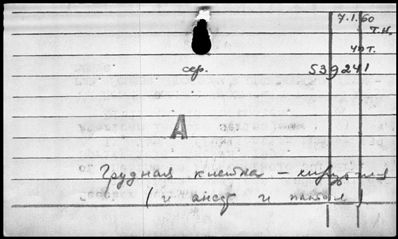 7.1.60
Т.Н.
40т.
сер. 539241
А
Грудная клетка — хирургия
(и анат и патол)